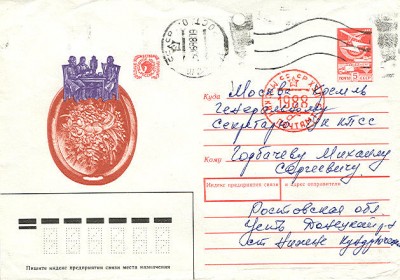 1988
ПОЧТА СССР
5
Куда Москва Кремль
Генеральному
Секретарю ЦК КПСС
Кому Горбачеву Михаилу
Сергеевичу
Индекс предприятия связи и адрес отправителя
Ростовская обл.
Усть Донецкий р-н
ст Нижне Кундрюченская
Пишите индекс предприятия связи места назначения